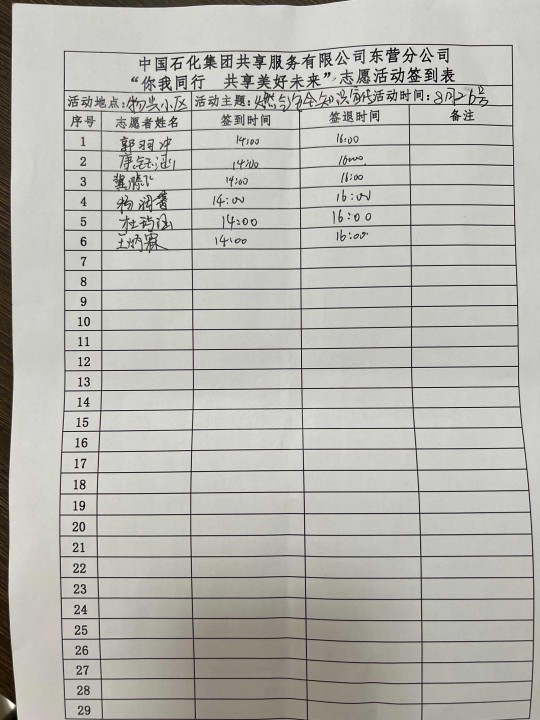 中国石化集团共享服务有限公司东营分公司
“你我同行 共享美好未来”志愿活动签到表
活动地点:物兴小区 活动主题:燃气安全知识宣传 活动时间:8月26号
序号 志愿者姓名 签到时间 签退时间 备注
1 郭羽冲 14:00 16:00
2 14:00 16:00
3 14:00 16:00
4 杨润蕾 14:00 16:00
5 杜玙涵 14:00 16:00
6 王炳霖 14:00 16:00
7
8
9
10
11
12
13
14
15
16
17
18
19
20
21
22
23
24
25
26
27
28
29